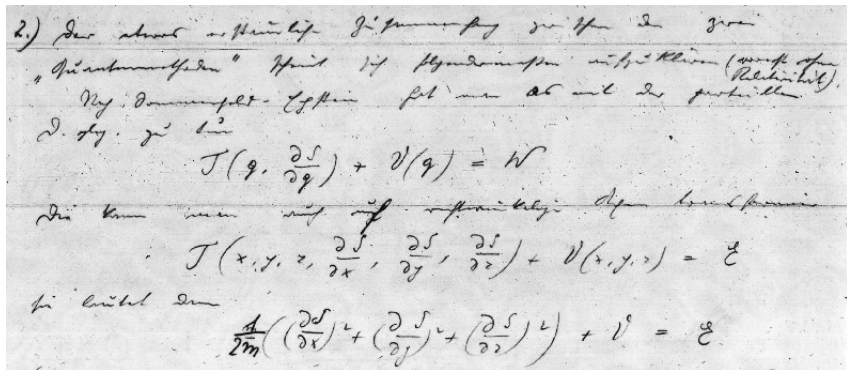 2.) Der etwas erstaunliche Zusammenhang zwischen den zwei
„Quantenmethoden" scheint sich folgendermassen aufzuklären (vorerst ohne
Relativität).
Nach Sommerfeld-Epstein hat man es mit der partiellen
D. glg. zu tun
T(q, ∂S/∂q) + V(q) = W
Die kann man auch auf rechtwinkelige transformieren
T(x, y, z, ∂S/∂x, ∂S/∂y, ∂S/∂z) + V(x, y, z) = E
sie lautet dann
1/2m ((∂S/∂x)² + (∂S/∂y)² + (∂S/∂z)²) + V = E